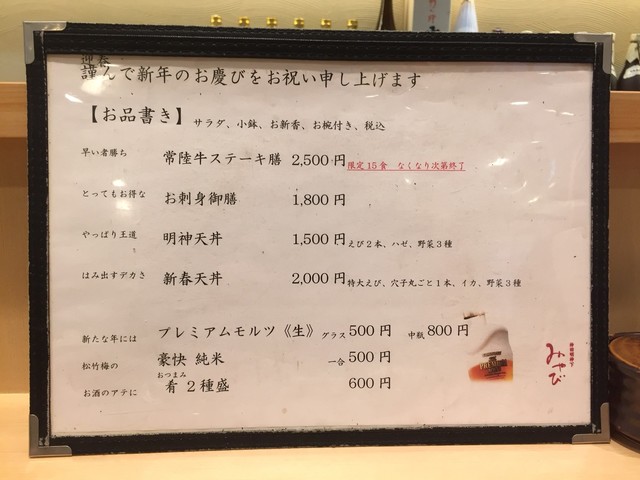 迎春
謹んで新年のお慶びをお祝い申し上げます
【お品書き】サラダ、小鉢、お新香、お椀付き、税込
早い者勝ち 常陸牛ステーキ膳 2,500円 限定15食 なくなり次第終了
とってもお得な お刺身御膳 1,800円
やっぱり王道 明神天丼 1,500円 えび2本、ハゼ、野菜3種
はみ出すデカさ 新春天丼 2,000円 特大えび、穴子丸ごと1本、イカ、野菜3種
新たな年には プレミアムモルツ《生》 グラス 500円 中瓶 800円
松竹梅の 豪快 純米 一合 500円
おつまみ
お酒のアテに 肴 2種盛 600円
みやび